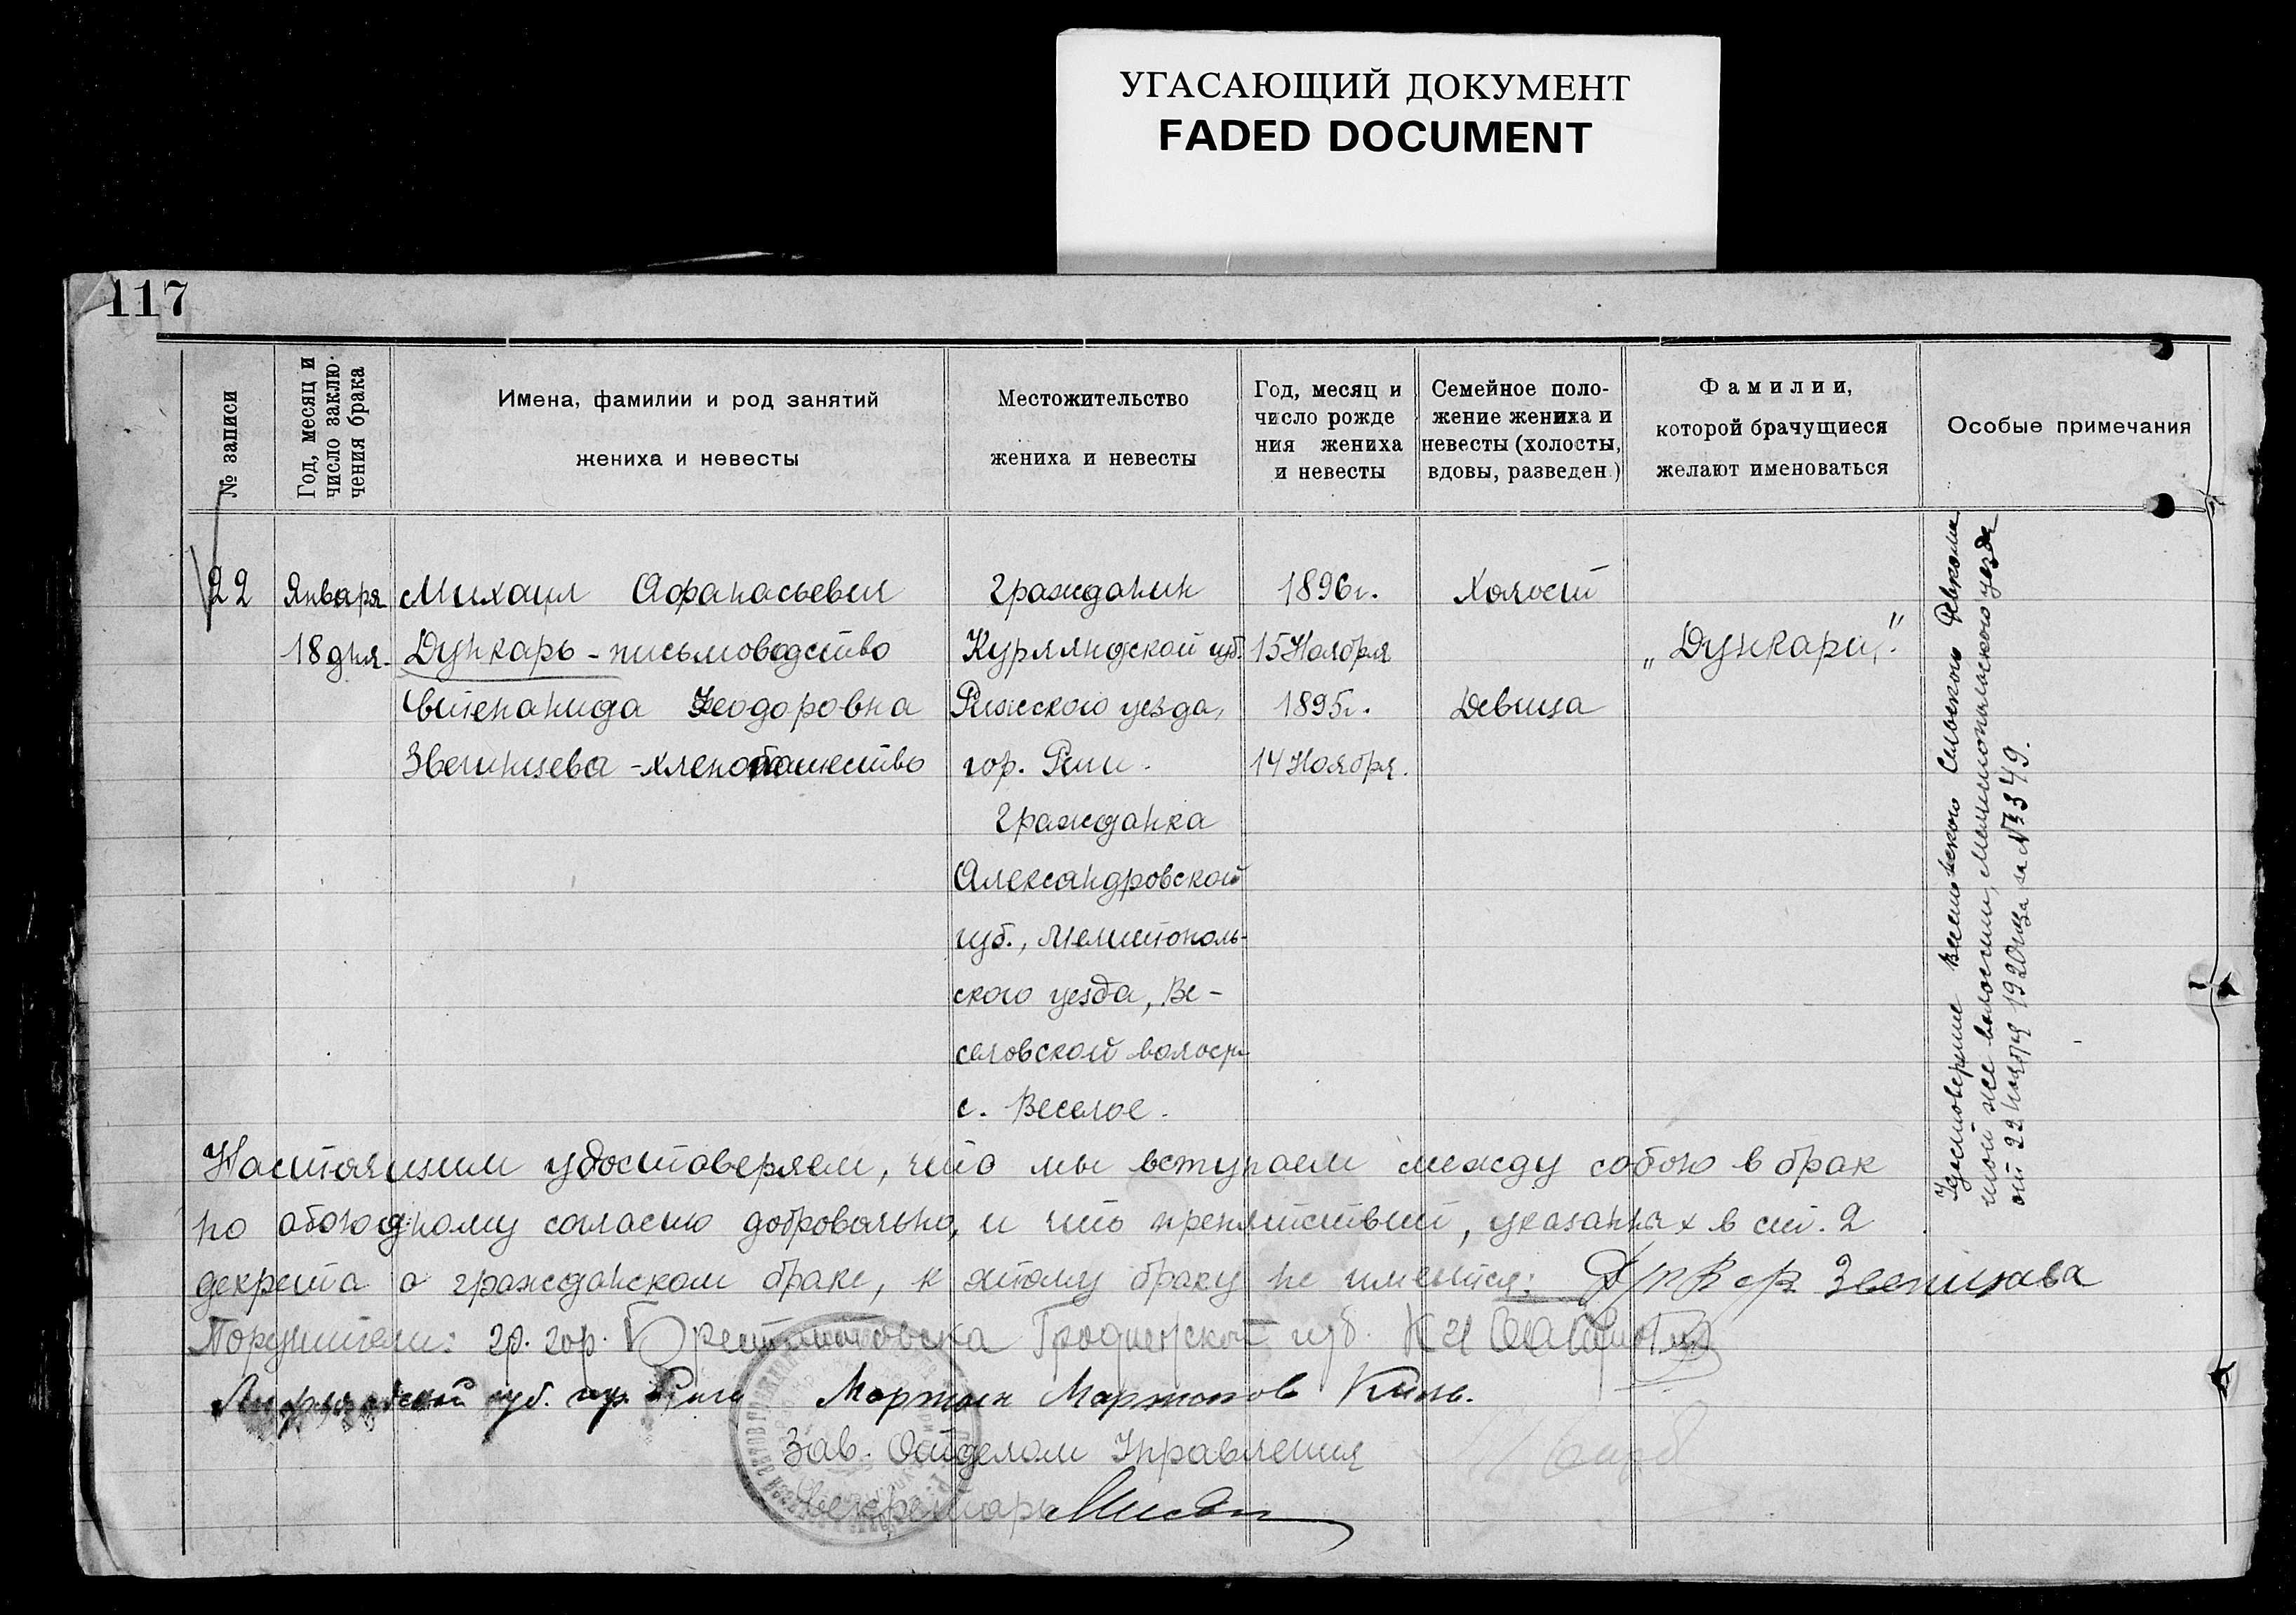 УГАСАЮЩИЙ ДОКУМЕНТ
FADED DOCUMENT
117
№ записи
Год, месяц и
число заклю-
чения брака
Имена, фамилии и род занятий
жениха и невесты
Местожительство
жениха и невесты
Год, месяц и
число рожде
ния жениха
и невесты
Семейное поло-
жение жениха и
невесты (холосты,
вдовы, разведен.)
Фамилии,
которой брачущиеся
желают именоваться
Особые примечания
22
Января
18 дня.
Михаил Афанасьевич
Дункарь - письмоводство
Степанида Феодоровна
Звегинцева - хлепопашество
Гражданин
Курляндской губ.
Рижского уезда,
гор. Риги.
Гражданка
Александровской
губ., Мелитополь-
ского уезда, Ве-
селовской волости
с. Веселое.
1896г.
15 Ноября
1895г.
14 Ноября.
Холост
Девица
„Дункарь“.
Удостоверение Сельского Ревкома
той же волости, Мелитопольского уезда
от 22 ноября 1920 года за № 3349.
Настоящим удостоверяем, что мы вступаем между собою в брак
по обоюдному согласию добровольно, и что препятствий, указанных в ст. 2
декрета о гражданском браке, к этому браку не имеется:
Поручители: гр. гор. Брестлитовска Гродненской губ.
Лифляндской губ. гор. Рига Мартын Мартынов
Зав. Отделом Управления
Секретарь